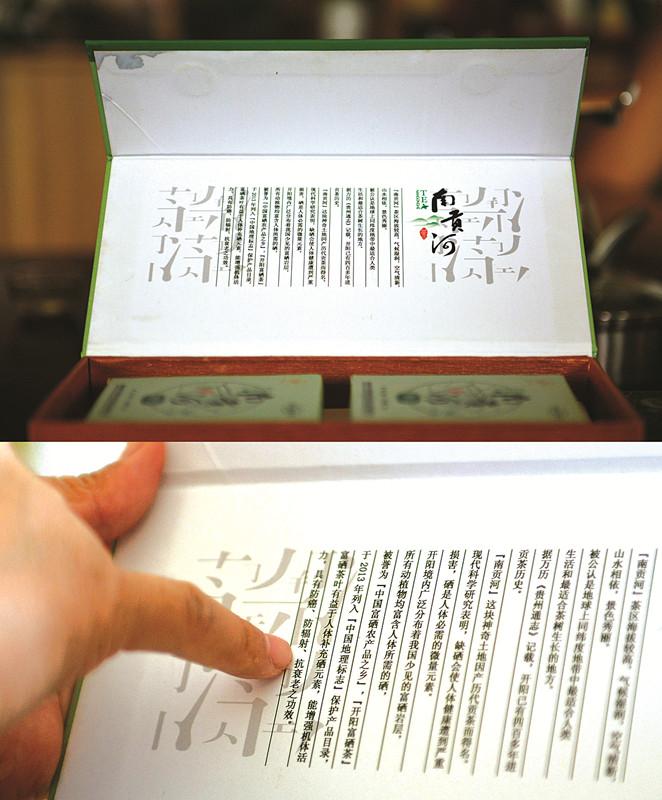 南贡河
TEA
『南贡河』茶区海拔较高，气候湿润，空气清新，
山水相依，景色秀丽，
被公认是地球上同纬度地带中最适合人类
生活和最适合茶树生长的地方。
据万历《贵州通志》记载，开阳已有四百多年进
贡茶历史。
『南贡河』这块神奇土地因产历代贡茶而得名。
现代科学研究表明，缺硒会使人体健康遭到严重
损害，硒是人体必需的微量元素。
开阳境内广泛分布着我国少见的富硒岩层，
所有动植物均富含人体所需的硒，
被誉为『中国富硒农产品之乡』，『开阳富硒茶』
于2013年列入『中国地理标志』保护产品目录，
富硒茶叶有益于人体补充硒元素，能增强机体活
力，具有防癌、防辐射、抗衰老之功效。